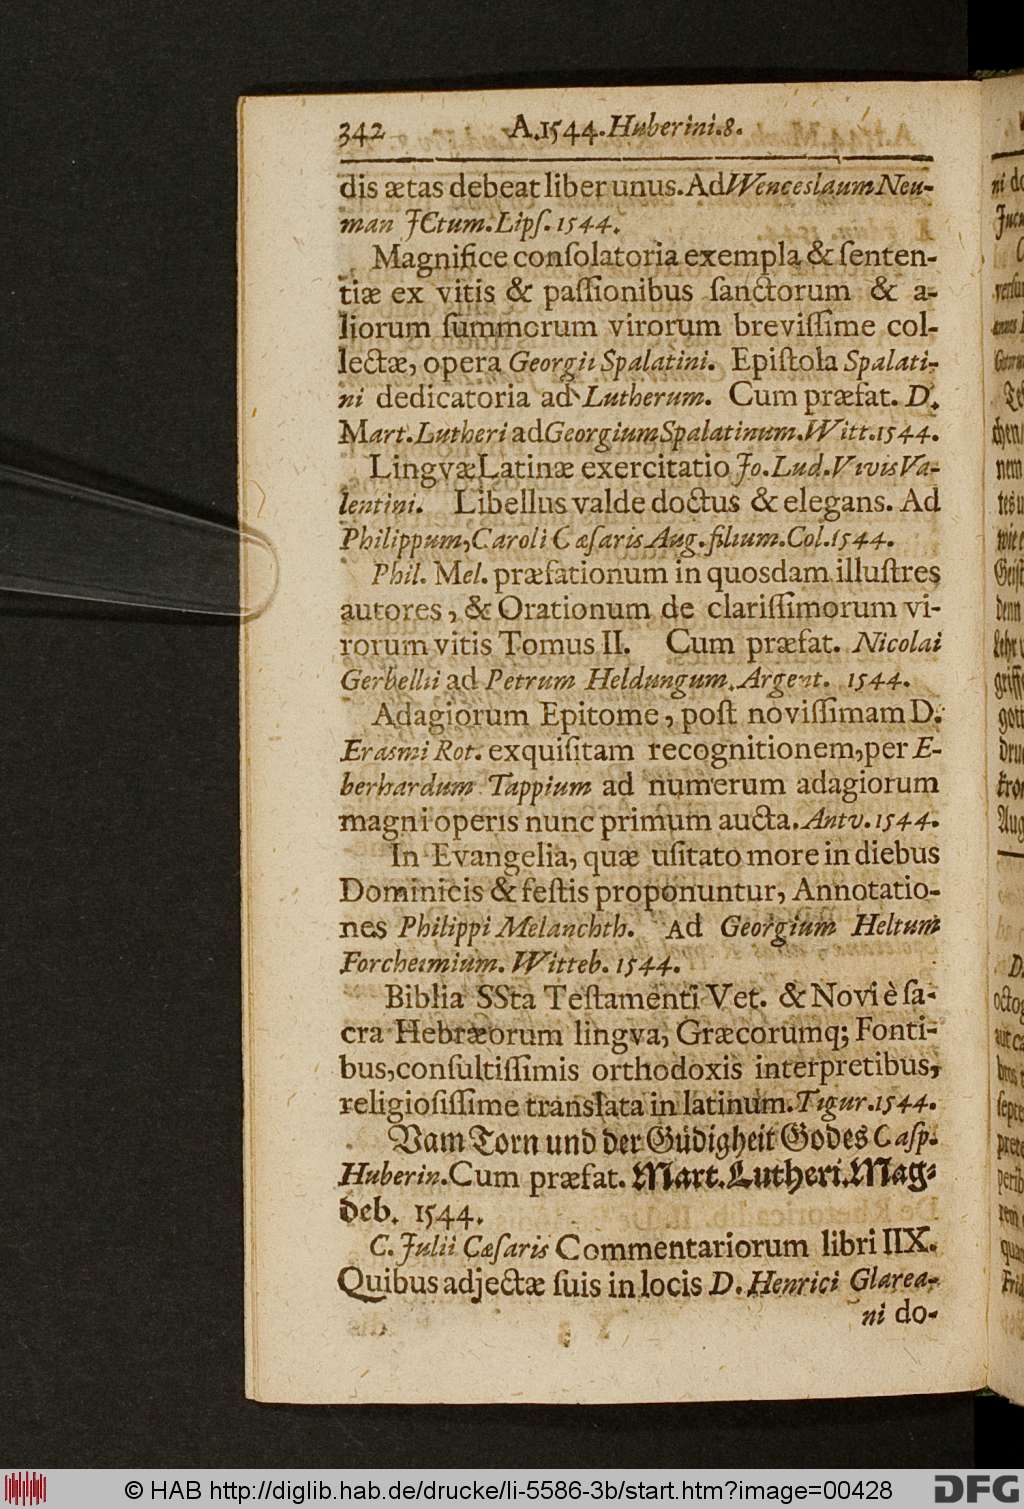 342 A.1544.Huberini.8.
dis ætas debeat liber unus. Ad Wenceslaum Neu-
man JCtum. Lipſ. 1544.
Magnifice conſolatoria exempla & ſenten-
tiæ ex vitis & paſſionibus ſanctorum & a-
liorum ſummorum virorum breviſſime col-
lectæ, opera Georgii Spalatini. Epiſtola Spalati-
ni dedicatoria ad Lutherum. Cum præfat. D.
Mart. Lutheri ad Georgium Spalatinum. Witt. 1544.
Lingvæ Latinæ exercitatio Jo. Lud. Vivis Va-
lentini. Libellus valde doctus & elegans. Ad
Philippum, Caroli Cæſaris Aug. filium. Col. 1544.
Phil. Mel. præfationum in quosdam illuſtres
autores, & Orationum de clariſſimorum vi-
rorum vitis Tomus II. Cum præfat. Nicolai
Gerbelii ad Petrum Heldungum. Argent. 1544.
Adagiorum Epitome, poſt noviſſimam D.
Erasmi Rot. exquiſitam recognitionem, per E-
berhardum Tappium ad numerum adagiorum
magni operis nunc primum aucta. Antv. 1544.
In Evangelia, quæ uſitato more in diebus
Dominicis & feſtis proponuntur, Annotatio-
nes Philippi Melanchth. Ad Georgium Heltum
Forcheimium. Witteb. 1544.
Biblia SSta Teſtamenti Vet. & Novi è ſa-
cra Hebræorum lingva, Græcorumq; Fonti-
bus, conſultiſſimis orthodoxis interpretibus,
religioſiſſime translata in latinum. Tigur. 1544.
Vam Torn und der Güdigheit Godes Caſp.
Huberin. Cum præfat. Mart. Lutheri. Mag-
deb. 1544.
C. Julii Cæſaris Commentariorum libri IIX.
Quibus adjectæ ſuis in locis D. Henrici Glarea-
ni do-
© HAB http://diglib.hab.de/drucke/li-5586-3b/start.htm?image=00428
DFG